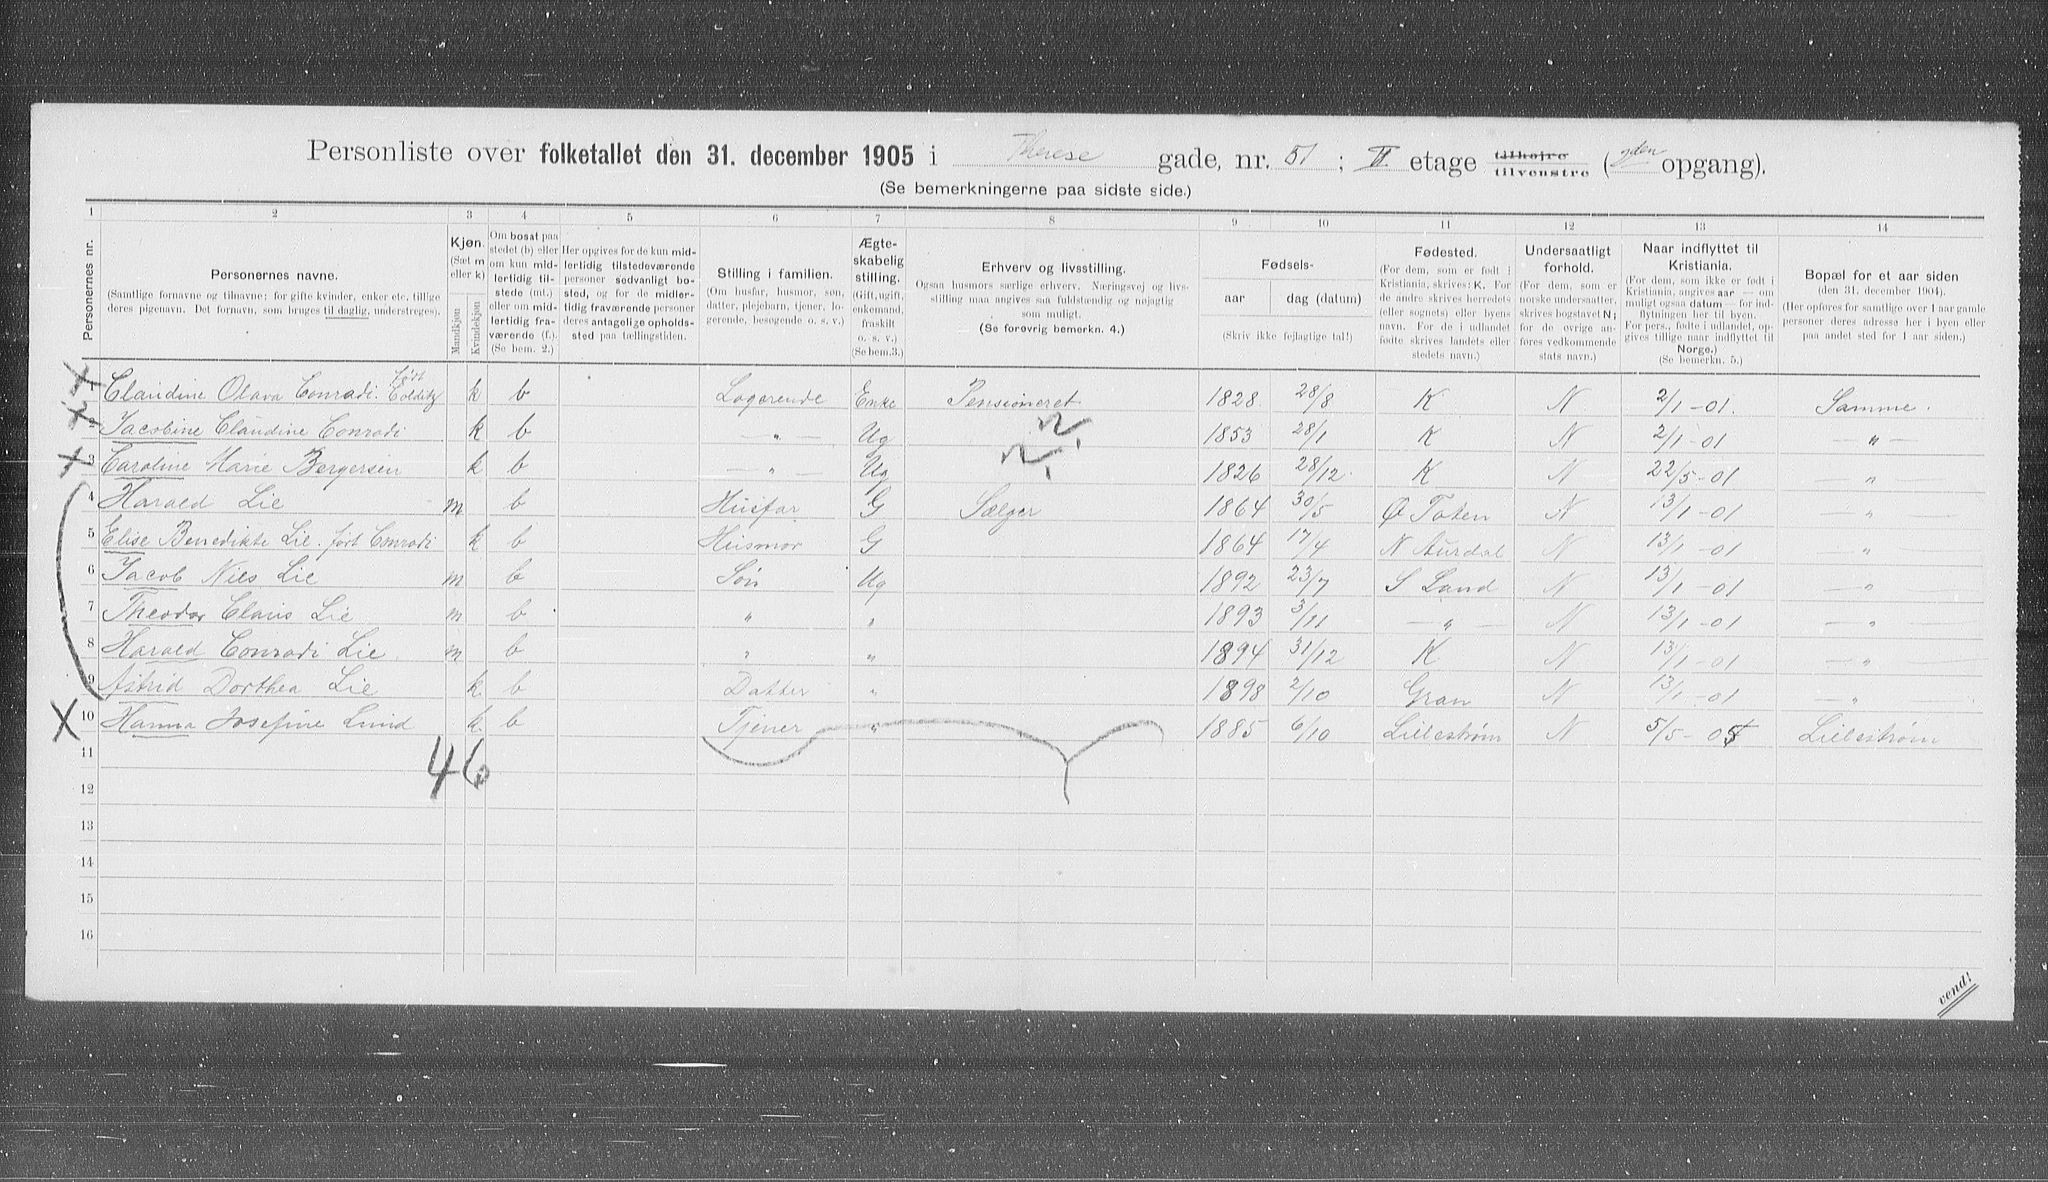 Personliste over folketallet den 31. december 1905 i Therese gade, nr. 51 ; II etage tilhøjre tilvenstre (gden opgang).
(Se bemerkningerne paa sidste side.)
1 2 3 4 5 6 7 8 9 10 11 12 13 14
Personernes nr.
Personernes navne.
(Samtlige fornavne og tilnavne; for gifte kvinder, enker etc. tillige
deres pigenavn. Det fornavn, som bruges til daglig, understreges).
Kjøn.
(Sæt m
eller k)
Mandkjøn
Kvindekjøn
Om bosat paa
stedet (b) eller
om kun mid-
lertidig til-
stede (mt.)
eller om mid-
lertidig fra-
værende (f.).
(Se bem. 2.)
Her opgives for de kun mid-
lertidig tilstedeværende
personer sedvanligt bo-
sted, og for de midler-
tidig fraværende personer
deres antagelige opholds-
sted paa tællingstiden.
Stilling i familien.
(Om husfar, husmor, søn,
datter, plejebarn, tjener, lo-
gerende, besøgende o. s. v.)
Ægte-
skabelig
stilling.
(Gift, ugift,
enkemand,
fraskilt
o. s. v.)
(Se bem.3.)
Erhverv og livsstilling.
Ogsaa husmors særlige erhverv. Næringsvej og livs-
stilling maa angives saa fuldstændig og nøjagtig
som muligt.
(Se forøvrig bemerkn. 4.)
Fødsels-
aar dag (datum)
(Skriv ikke fejlagtige tal!)
Fødested.
(For dem, som er født i
Kristiania, skrives: K. For
de andre skrives herredets
(eller sognets) eller byens
navn. For de i udlandet
fødte skrives landets eller
stedets navn.)
Undersaatligt
forhold.
(For dem, som er
norske undersaatter,
skrives bogstavet N;
for de øvrige an-
føres vedkommende
stats navn.)
Naar indflyttet til
Kristiania.
(For dem, som ikke er født i
Kristiania, angives aar — om
muligt ogsaa datum — for ind-
flytningen her til byen.
For pers., fødte i udlandet, op-
gives tillige naar indflyttet til
Norge.)
(Se bemerkn. 5.)
Bopæl for et aar siden
(den 31. december 1904).
(Her opføres for samtlige over 1 aar gamle
personer deres adresse her i byen eller
paa andet sted for 1 aar siden.)
1 Claudine Olava Conradi født Colditz k b Logerende Enke Pensioneret 1828 28/8 K N 2/1-01. Samme.
2 Jacobine Claudine Conradi k b — „ — Ug 1853 28/1 K N 2/1-01 — „ —
3 Caroline Marie Bergersen k b — „ — Ug 1826 28/12 K N 22/5-01 — „ —
4 Harald Lie m b Husfar G Sælger 1864 30/5 Ø Toten N 13/1-01 — „ —
5 Elise Benedikte Lie. født Conradi k b Husmor G 1864 17/4 N Aurdal N 13/1-01 — „ —
6 Jacob Niels Lie m b Søn Ug 1892 23/7 S Land N 13/1-01 — „ —
7 Theodor Claus Lie m b „ „ 1893 3/11 — „ — N 13/1-01 — „ —
8 Harald Conradi Lie m b „ „ 1894 31/12 K N 13/1-01 — „ —
9 Astrid Dorthea Lie k b Datter „ 1898 2/10 Gran N 13/1-01 — „ —
10 Hanna Josefine Lund k b Tjener „ 1885 6/10 Lillestrøm N 5/5-05 Lillestrøm
11
46
12
13
14
15
16
vend!